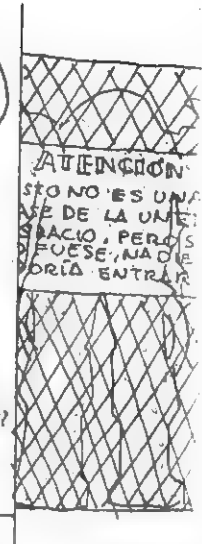 ATENCIÓN
STO NO ES UNA
ASE DE LA UNE
PACIO, PERO S
FUESE, NADIE
DRÍA ENTRAR